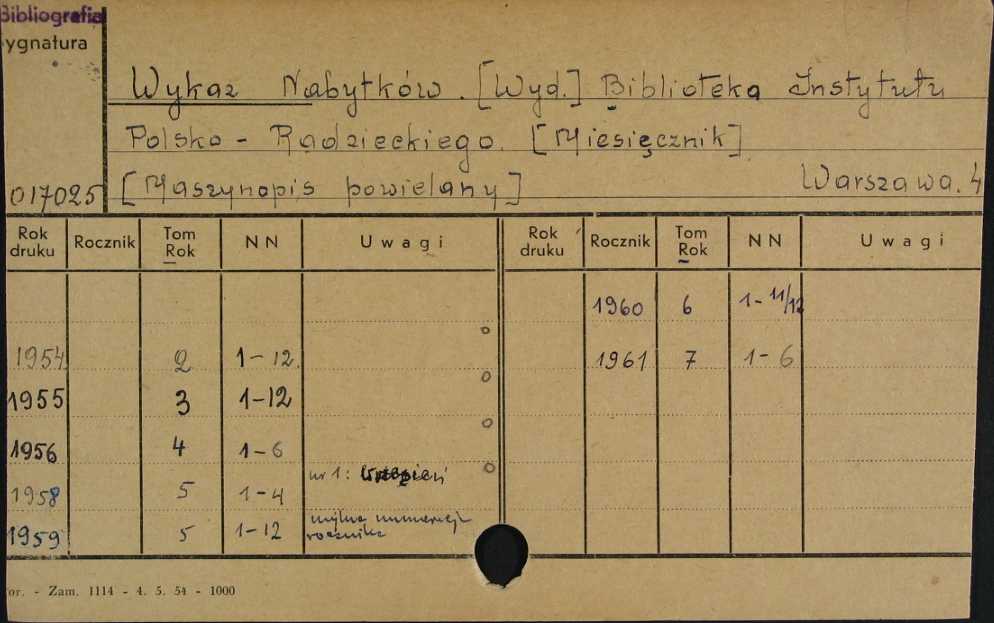 Bibliografia
ygnatura
Wykaz Nabytków. [Wyd.] Biblioteka Instytutu
Polsko - Radzieckiego. [Miesięcznik]
017025 [Maszynopis powielany] Warszawa. 4
Rok druku Rocznik Tom Rok NN Uwagi Rok druku Rocznik Tom Rok NN Uwagi
1960 6 1-11/12
1954 2 1-12. 1961 7 1-6
1955 3 1-12
1956 4 1-6
1958 5 1-4 nr 1:
1959 5 1-12 mylna numeracja
rocznika
or. - Zam. 1114 - 4. 5. 54 - 1000